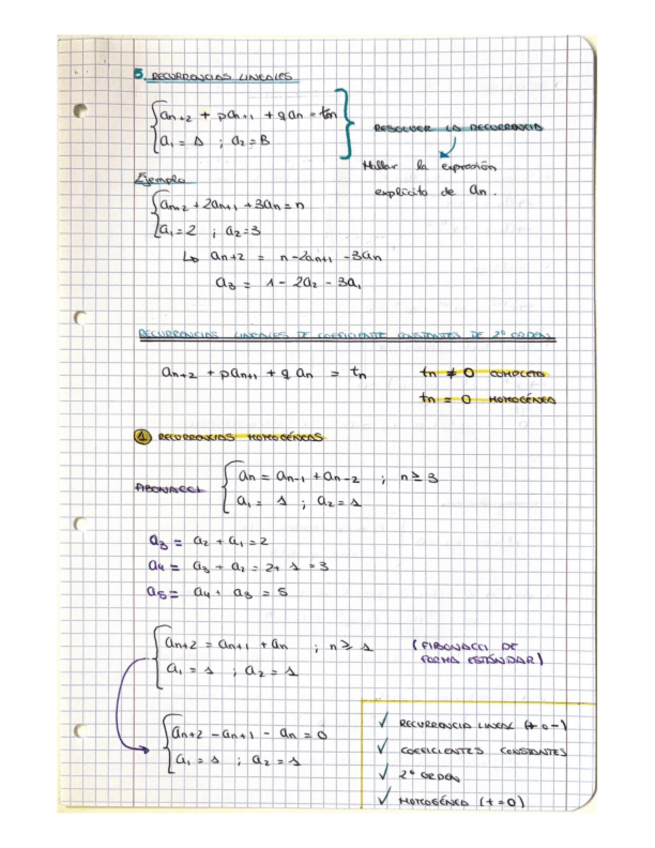 5. RECURRENCIAS LINEALES
an+2 + pan+1 + q an = tn
a1 = A ; a2 = B
RESOLVER LA RECURRENCIA
Hallar la expresión
explícita de an.
Ejemplo
an+2 + 2an+1 + 3an = n
a1 = 2 ; a2 = 3
↳ an+2 = n - 2an+1 - 3an
a3 = 1 - 2a2 - 3a1
RECURRENCIAS LINEALES DE COEFICIENTE CONSTANTES DE 2º ORDEN
an+2 + pan+1 + q an = tn
tn ≠ 0 COMPLETA
tn = 0 HOMOGÉNEA
1 RECURRENCIAS HOMOGÉNEAS
FIBONACCI
an = an-1 + an-2 ; n ≥ 3
a1 = 1 ; a2 = 1
a3 = a2 + a1 = 2
a4 = a3 + a2 = 2 + 1 = 3
a5 = a4 + a3 = 5
an+2 = an+1 + an ; n ≥ 1
a1 = 1 ; a2 = 1
(FIBONACCI DE
FORMA ESTÁNDAR)
an+2 - an+1 - an = 0
a1 = 1 ; a2 = 1
✓ RECURRENCIA LINEAL (+ o -)
✓ COEFICIENTES CONSTANTES
✓ 2º ORDEN
✓ HOMOGÉNEA (t = 0)